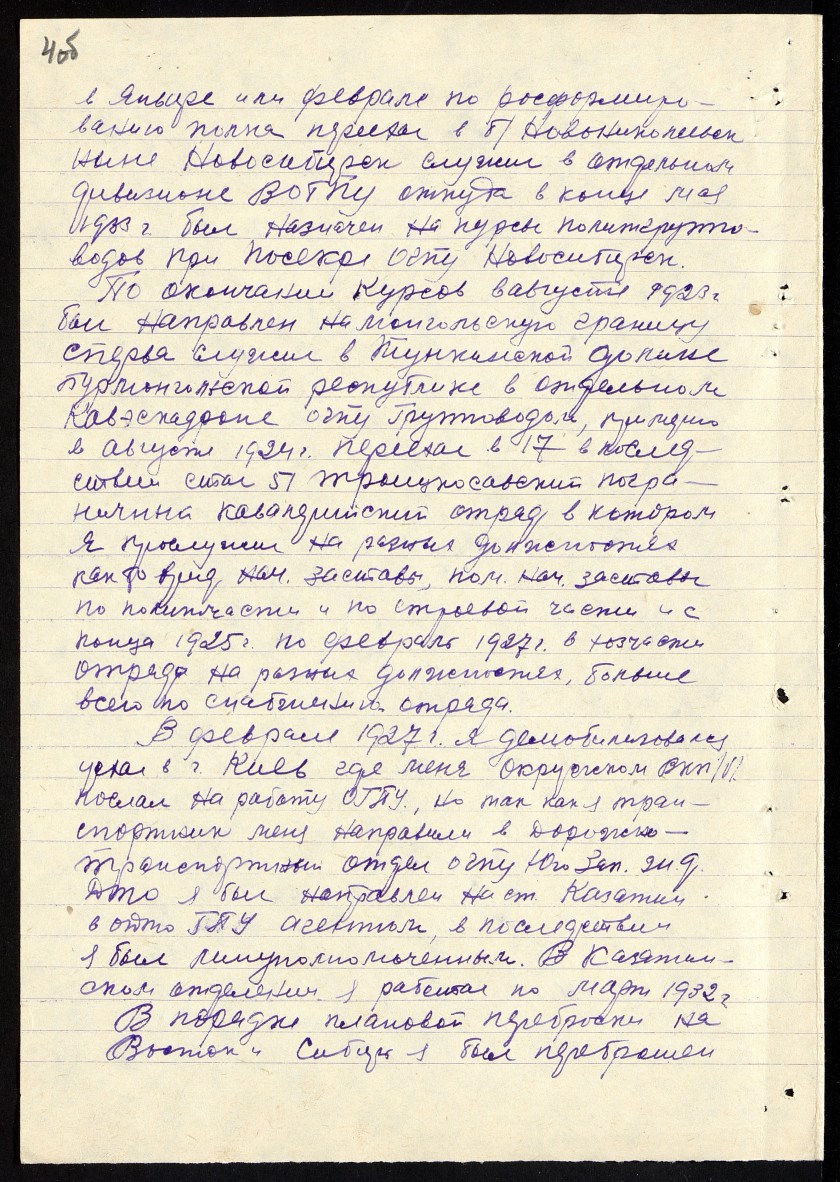 4об
в Январе или феврале по росформиро-
ванию полка переехал в г/ Новониколаевск
ныне Новосибирск служил в отдельном
дивизионе ВОГПУ откуда в конце мая
1923 г был назначен на курсы политгрупо-
водов при Посекре ОГПУ Новосибирск.
По окончании Курсов в августе 1923 г
был направлен на монгольскую границу
сперва служил в Тункинской долине
Бурмонгольской республике в отдельном
Кавэскадроне ОГПУ Групповодом, примерно
в августе 1924 г. переехал в 17 в послед-
ствии стал 51 Троицкосавский погра-
нична кавалерийский отряд в котором
я прослужил на разных должностях
как то врид. нач. заставы, пом. нач. заставы
по политчасти и по строевой части и с
конца 1925 г. по февраль 1927 г. в хозчасти
отряда на разных должностях, больше
всего по снабжению отряда.
В феврале 1927 г. я демобилизовался
уехал в г. Киев где меня Окружском ВКП/б/
послал на работу ОГПУ., но так как я тран-
спортник меня направили в Дорожно-
транспортный отдел ОГПУ Юго Зап. ж.д.
ДТО я был направлен на ст. Казатин
в ОДТО ГПУ агентом, в последствии
я был линуполномоченным. В Казатин-
ском отделении я работал по март 1932 г
В порядке плановой переброски на
Восток и Сибирь я был переброшен